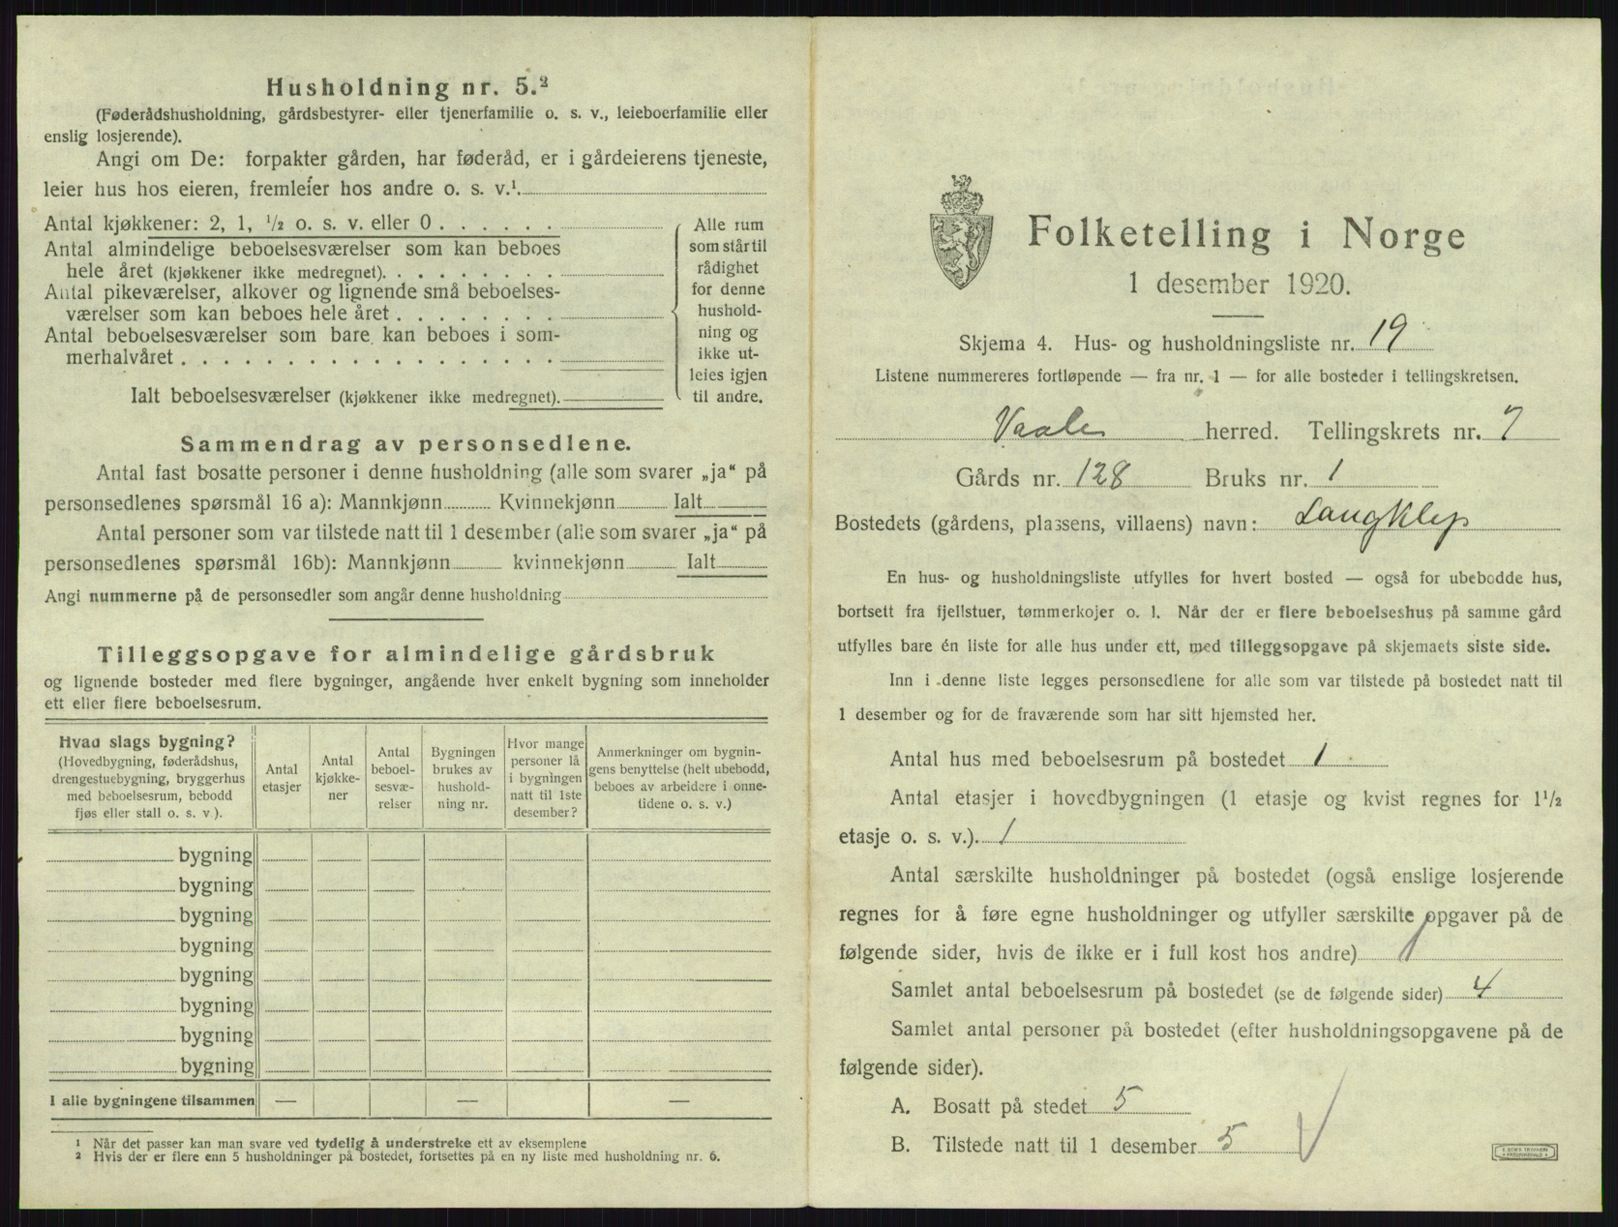 Husholdning nr. 5.²
(Føderådshusholdning, gårdsbestyrer- eller tjenerfamilie o. s. v., leieboerfamilie eller
enslig losjerende).
Angi om De: forpakter gården, har føderåd, er i gårdeierens tjeneste,
leier hus hos eieren, fremleier hos andre o. s. v.¹
Antal kjøkkener: 2, 1, ½ o. s. v. eller 0 . . . . . .
Antal almindelige beboelsesværelser som kan beboes
hele året (kjøkkener ikke medregnet). . . . . . . . .
Antal pikeværelser, alkover og lignende små beboelses-
værelser som kan beboes hele året . . . . . . . .
Antal beboelsesværelser som bare kan beboes i som-
merhalvåret . . . . . . . . . . . . . . . . . .
Ialt beboelsesværelser (kjøkkener ikke medregnet).
Alle rum
som står til
rådighet
for denne
hushold-
ning og
ikke ut-
leies igjen
til andre.
Sammendrag av personsedlene.
Antal fast bosatte personer i denne husholdning (alle som svarer „ja“ på
personsedlenes spørsmål 16 a): Mannkjønn Kvinnekjønn Ialt
Antal personer som var tilstede natt til 1 desember (alle som svarer „ja“ på
personsedlenes spørsmål 16b): Mannkjønn kvinnekjønn Ialt
Angi nummerne på de personsedler som angår denne husholdning
Tilleggsopgave for almindelige gårdsbruk
og lignende bosteder med flere bygninger, angående hver enkelt bygning som inneholder
ett eller flere beboelsesrum.
Hvad slags bygning?
(Hovedbygning, føderådshus,
drengestuebygning, bryggerhus
med beboelsesrum, bebodd
fjøs eller stall o. s. v.).
Antal
etasjer
Antal
kjøkke-
ner
Antal
beboel-
sesvæ-
relser
Bygningen
brukes av
hushold-
ning nr.
Hvor mange
personer lå
i bygningen
natt til 1ste
desember?
Anmerkninger om bygnin-
gens benyttelse (helt ubebodd,
beboes av arbeidere i onne-
tidene o. s. v.)
bygning
bygning
bygning
bygning
bygning
bygning
bygning
bygning
I alle bygningene tilsammen — — —
¹ Når det passer kan man svare ved tydelig å understreke ett av eksemplene
² Hvis der er flere enn 5 husholdninger på bostedet, fortsettes på en ny liste med husholdning nr. 6.
Folketelling i Norge
1 desember 1920.
Skjema 4. Hus- og husholdningsliste nr. 19
Listene nummereres fortløpende — fra nr. 1 — for alle bosteder i tellingskretsen.
Vaale herred. Tellingskrets nr. 7
Gårds nr. 128 Bruks nr. 1
Bostedets (gårdens, plassens, villaens) navn: Langklep
En hus- og husholdningsliste utfylles for hvert bosted — også for ubebodde hus,
bortsett fra fjellstuer, tømmerkojer o. l. Når der er flere beboelseshus på samme gård
utfylles bare én liste for alle hus under ett, med tilleggsopgave på skjemaets siste side.
Inn i denne liste legges personsedlene for alle som var tilstede på bostedet natt til
1 desember og for de fraværende som har sitt hjemsted her.
Antal hus med beboelsesrum på bostedet 1
Antal etasjer i hovedbygningen (1 etasje og kvist regnes for 1½
etasje o. s. v.). 1
Antal særskilte husholdninger på bostedet (også enslige losjerende
regnes for å føre egne husholdninger og utfyller særskilte opgaver på de
følgende sider, hvis de ikke er i full kost hos andre) 1
Samlet antal beboelsesrum på bostedet (se de følgende sider) 4
Samlet antal personer på bostedet (efter husholdningsopgavene på de
følgende sider).
A. Bosatt på stedet 5
B. Tilstede natt til 1 desember 5